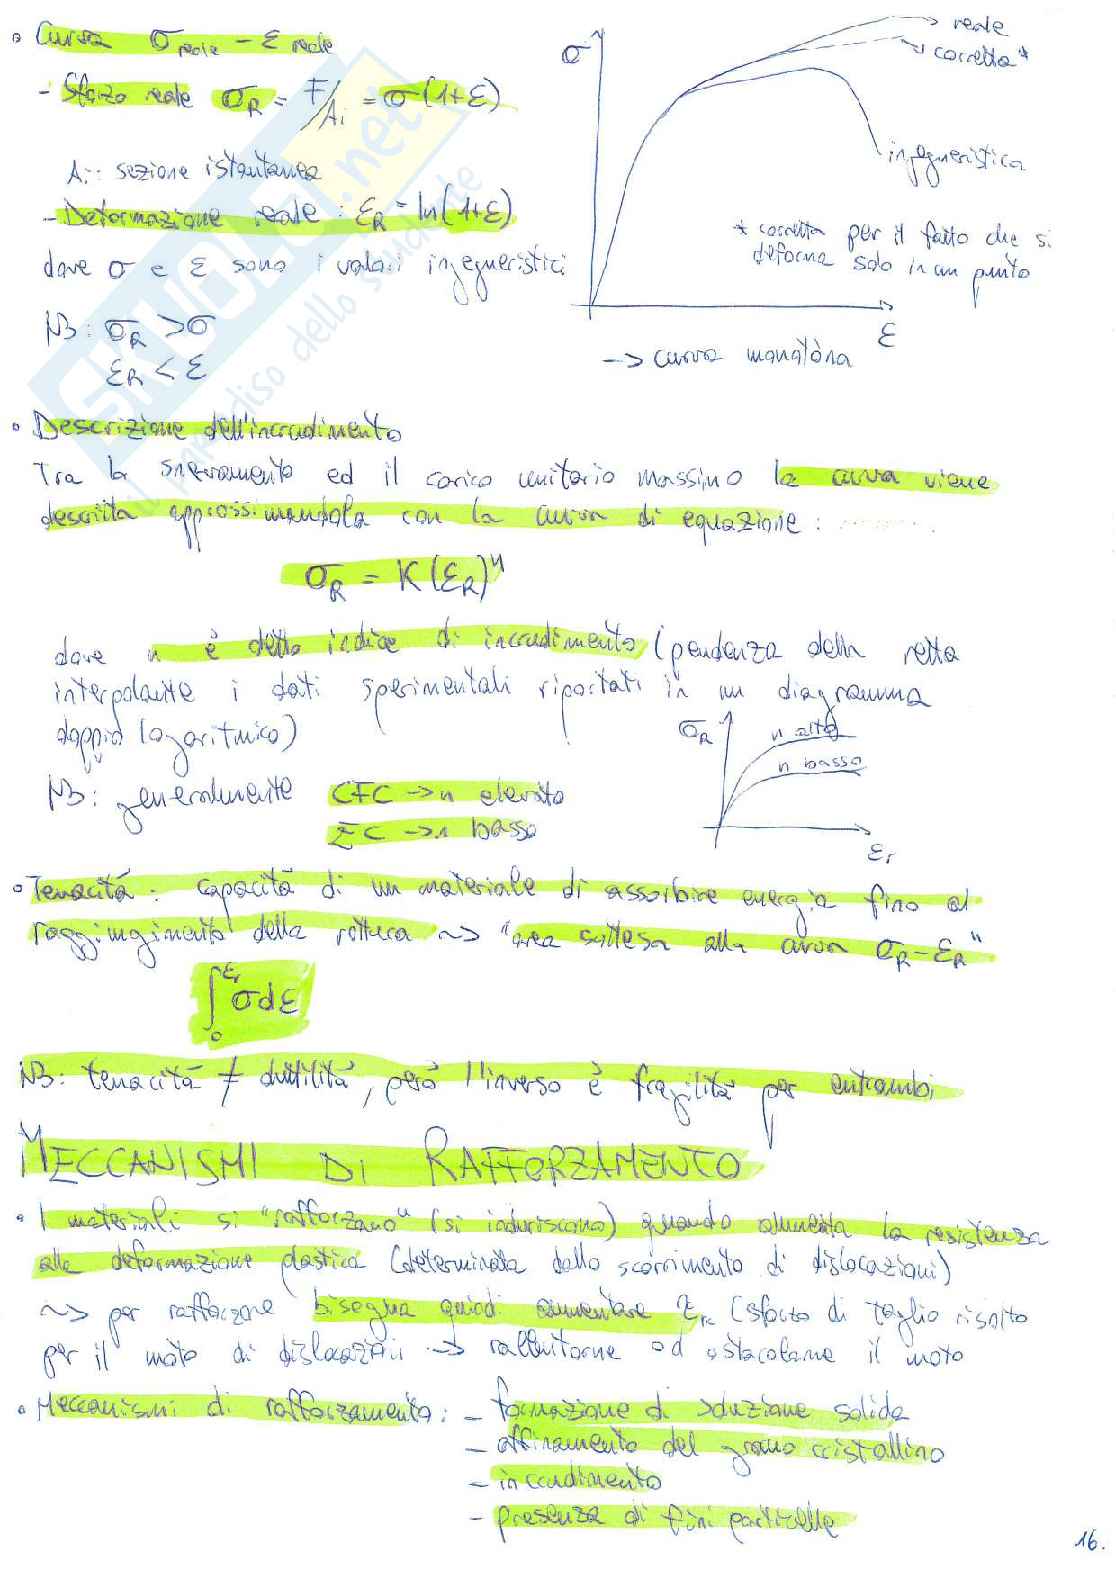 Curva σ reale – ε reale
- Sforzo reale σR = F/Ai = σ(1+ε)
Ai: sezione istantanea
- Deformazione reale: εR = ln(1+ε)
dove σ e ε sono i valori ingegneristici
NB: σR > σ
εR < ε
σ
reale
corretta*
ingegneristica
* corretta per il fatto che si
deforma solo in un punto
ε
-> curva monotòna
Descrizione dell'incrudimento
Tra lo snervamento ed il carico unitario massimo la curva viene
descritta approssimandola con la curva di equazione:
σR = K(εR)^n
dove n è detto indice di incrudimento (pendenza della retta
interpolante i dati sperimentali riportati in un diagramma
doppio logaritmico)
σR
n alto
n basso
εr
NB: generalmente CFC -> n elevato
EC -> n basso
Tenacità: capacità di un materiale di assorbire energia fino al
raggiungimento della rottura ~> "area sottesa alla curva σR-εR"
∫0^εr σdε
NB: tenacità ≠ duttilità, però l'inverso è fragilità per entrambi
MECCANISMI DI RAFFORZAMENTO
I materiali si "rafforzano" (si induriscono) quando aumenta la resistenza
alla deformazione plastica (determinata dallo scorrimento di dislocazioni)
~> per rafforzare bisogna quindi aumentare τrc (sforzo di taglio risolto
per il moto di dislocazioni -> rallentarne od ostacolarne il moto
Meccanismi di rafforzamento: - formazione di soluzione solida
- affinamento del grano cristallino
- incrudimento
- presenza di fini particelle
16.
SKUOLA.net
il paradiso dello studente